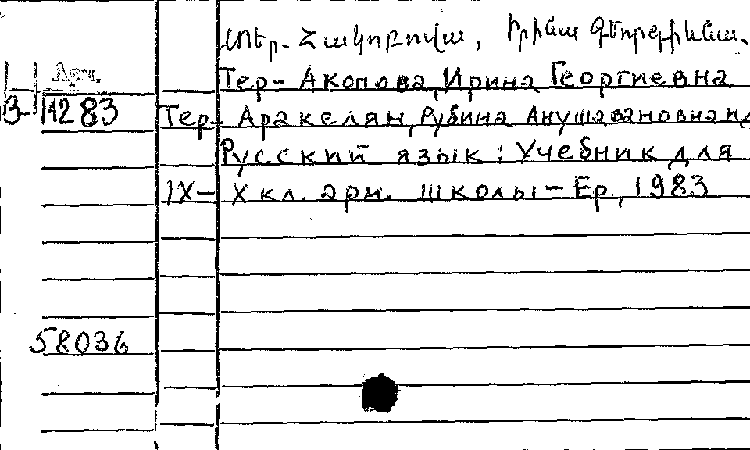 Տեր-Հակոբովա, Իրինա Գեորգիևնա.
Арм.
Тер-Акопова, Ирина Георгиевна
3- 1283 Тер-Аракелян, Рубина Анушавановна и др.
Русский язык: Учебник для
IX- X кл. арм. школы - Ер, 1983
58036